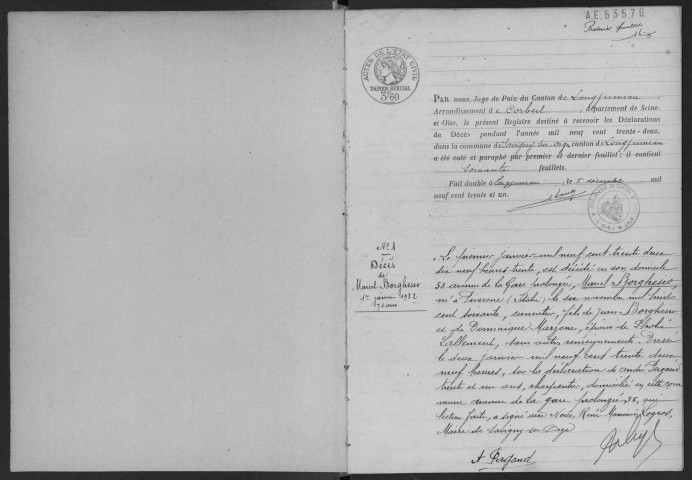 A.E.53576
Premier feuillet
ACTES DE L'ÉTAT CIVIL
PAPIER SPÉCIAL
3F60
PAR nous, Juge de Paix du Canton de Longjumeau
Arrondissement de Corbeil, département de Seine-
et-Oise, le présent Registre destiné à recevoir les Déclarations
de Décès pendant l'année mil neuf cent trente-deux,
dans la commune de Savigny-sur-Orge canton de Longjumeau
a été coté et paraphé par premier et dernier feuillet; il contient
soixante feuillets.
Fait double à Longjumeau, le 5 décembre mil
neuf cent trente et un.
No 1
Décès
de
Marcel Borghesio
1er janvier 1932
71 ans
Le premier janvier mil neuf cent trente deux
dix neuf heures trente, est décédé en son domicile
53 avenue de la Gare prolongée, Marcel Borghesio
né à (Italie) le six novembre mil huit
cent soixante, cimentier, fils de Jean Borghesio
et de Dominique Marjone, époux de
Lallement, sans autres renseignements. Dressé
le deux janvier mil neuf cent trente deux
neuf heures, sur la déclaration de André Pergaud
trente et un ans, charpentier, domicilié en cette com
mune avenue de la gare prolongée 55, qui
lecture faite, a signé avec Nous, René Legros,
Maire de Savigny sur Orge
A Pergaud